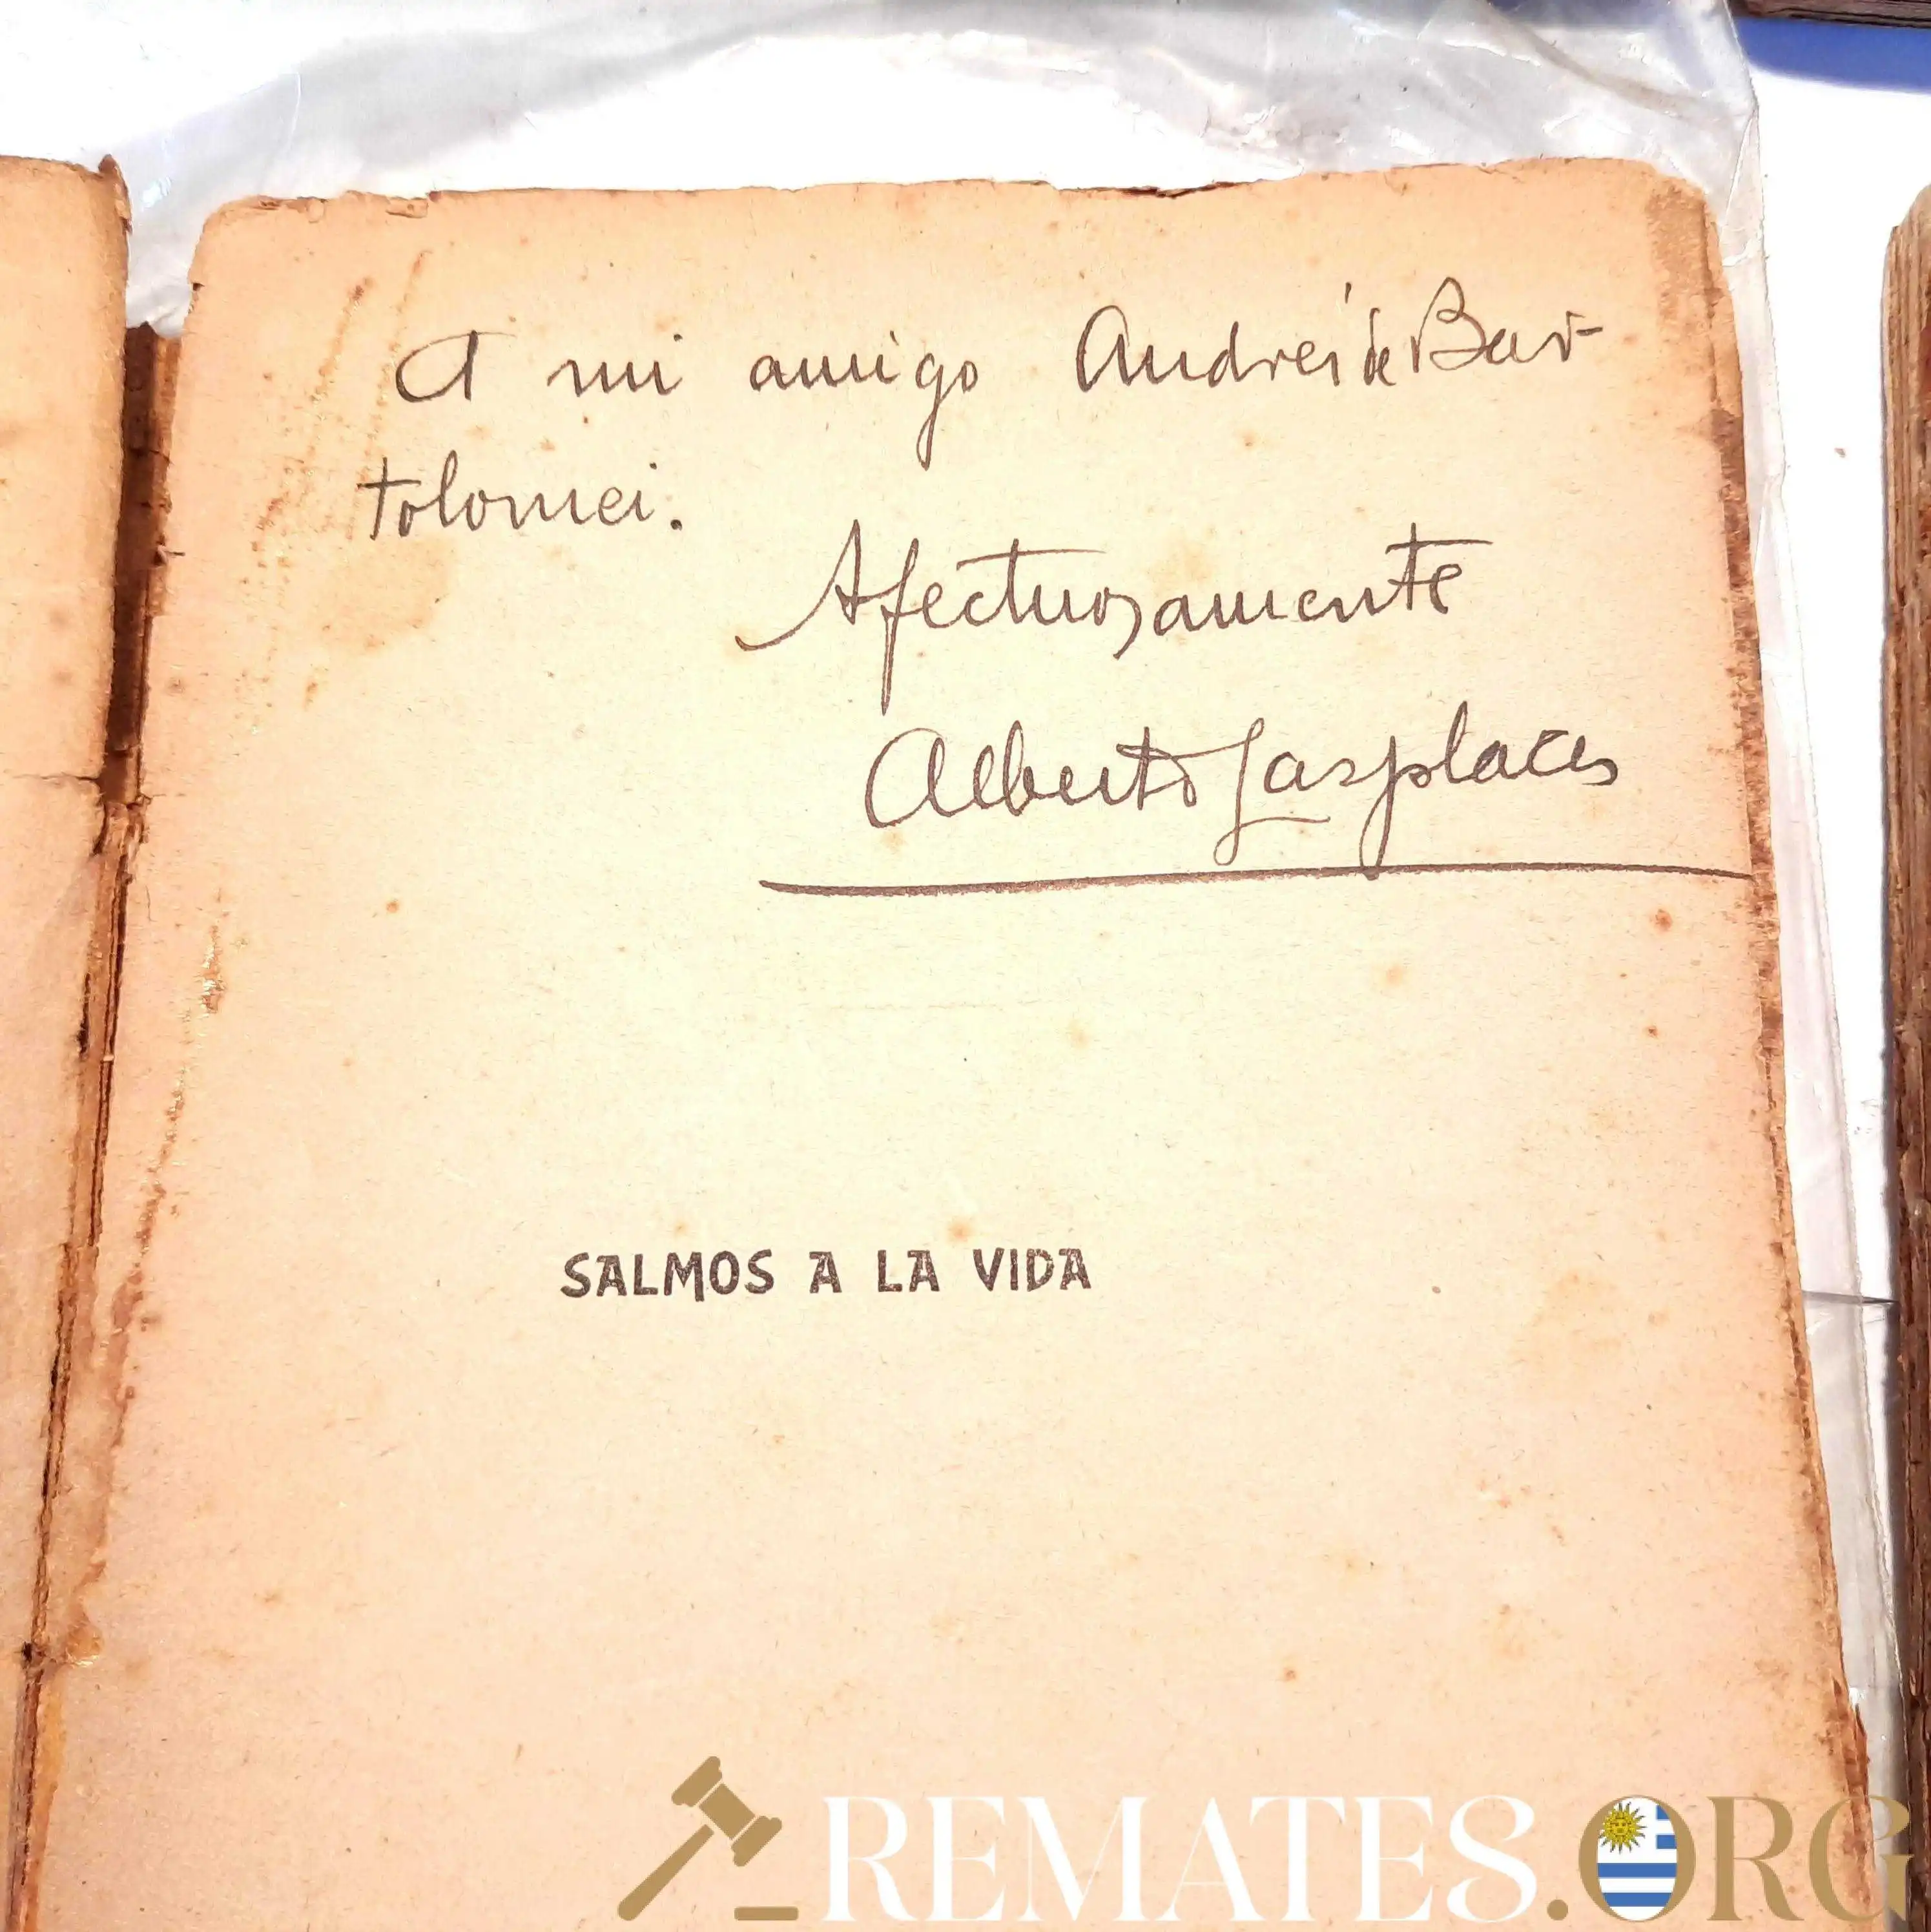 A mi amigo Andrés de Bar-
tolomei.
Afectuosamente
Alberto Lasplaces
SALMOS A LA VIDA
REMATES.ORG